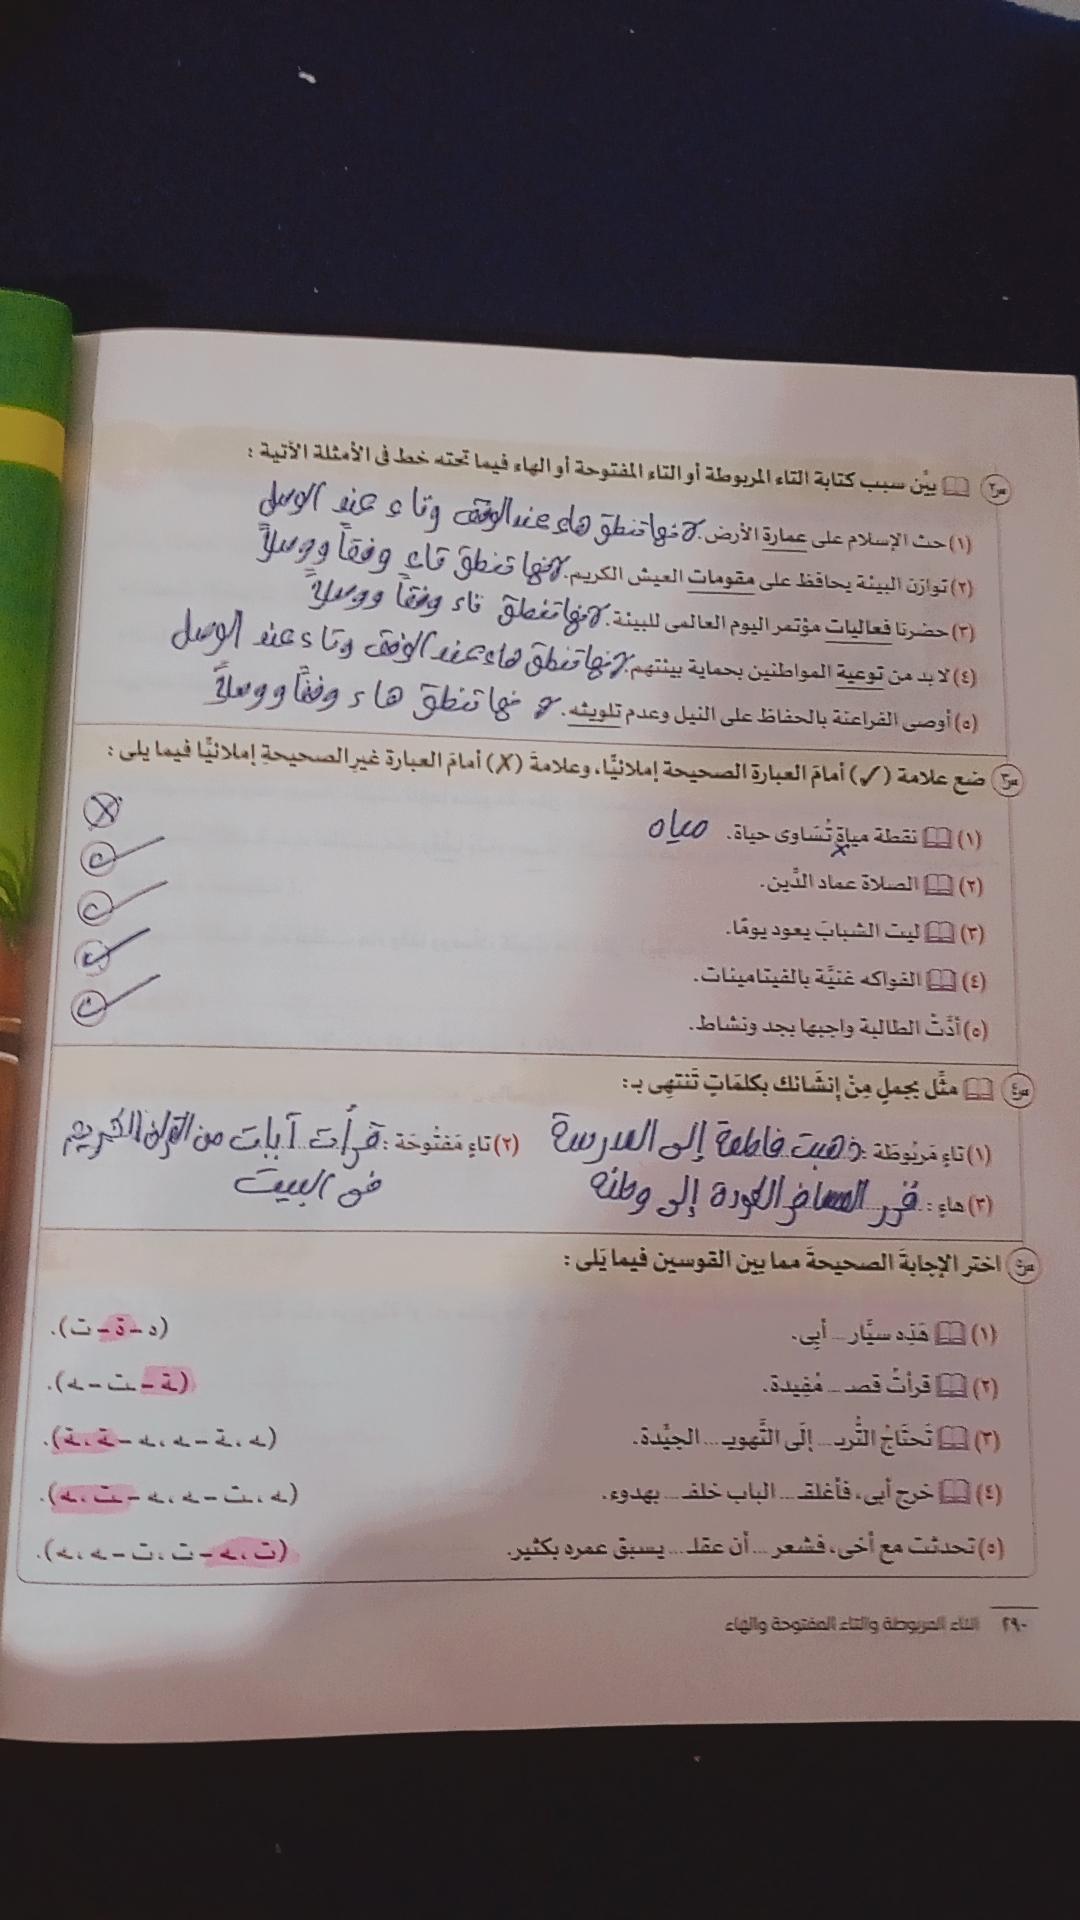 س٢ بيِّن سبب كتابة التاء المربوطة أو التاء المفتوحة أو الهاء فيما تحته خط فى الأمثلة الآتية :
(١) حث الإسلام على عمارة الأرض. لأنها تنطق هاء عند الوقف وتاء عند الوصل
(٢) توازن البيئة يحافظ على مقومات العيش الكريم. لأنها تنطق تاء وقفاً ووصلاً
(٣) حضرنا فعاليات مؤتمر اليوم العالمى للبيئة. لأنها تنطق تاء وقفاً ووصلاً
(٤) لا بد من توعية المواطنين بحماية بيئتهم. لأنها تنطق هاء عند الوقف وتاء عند الوصل
(٥) أوصى الفراعنة بالحفاظ على النيل وعدم تلويثه. لأنها تنطق هاء وقفاً ووصلاً
س٣ ضع علامة (✓) أمامَ العبارة الصحيحة إملائيًّا، وعلامةَ (✗) أمامَ العبارة غيرِ الصحيحةِ إملائيًّا فيما يلى :
(١) نقطة مياة تُساوى حياة. مياه ✗
(٢) الصلاة عماد الدِّين. ✓
(٣) ليت الشبابَ يعود يومًا. ✓
(٤) الفواكه غنيَّة بالفيتامينات. ✓
(٥) أدَّتْ الطالبة واجبها بجد ونشاط. ✓
س٤ مثِّل بجملٍ مِنْ إنشَائك بكلمَاتٍ تَنتهِى بـ:
(١) تاءٍ مَربُوطَة : ذهبت فاطمة إلى المدرسة (٢) تاءٍ مَفتُوحَة : قرأت آيات من القرآن الكريم
فى البيت
(٣) هاءٍ : قرر المسافر العودة إلى وطنه
س٥ اختر الإجابةَ الصحيحةَ مما بين القوسين فيما يَلى :
(١) هَذِه سيَّار... أبِى. (ه – ة – ت).
(٢) قرأتُ قصـ... مُفِيدة. (ـة – ـت – ـه).
(٣) تَحتَاجُ التُّربـ... إلَى التَّهويـ... الجيِّدة. (ـه ، ـة – ـه ، ـه – ـة ، ـة).
(٤) خرج أبى، فأغلقـ... الباب خلفـ... بهدوء. (ـه ، ـت – ـه ، ـه – ـت ، ـه).
(٥) تحدثت مع أخى، فشعر... أن عقلـ... يسبق عمره بكثير. (ت ، ـه – ت ، ت – ـه ، ـه).
٢٩٠ التاء المربوطة والتاء المفتوحة والهاء